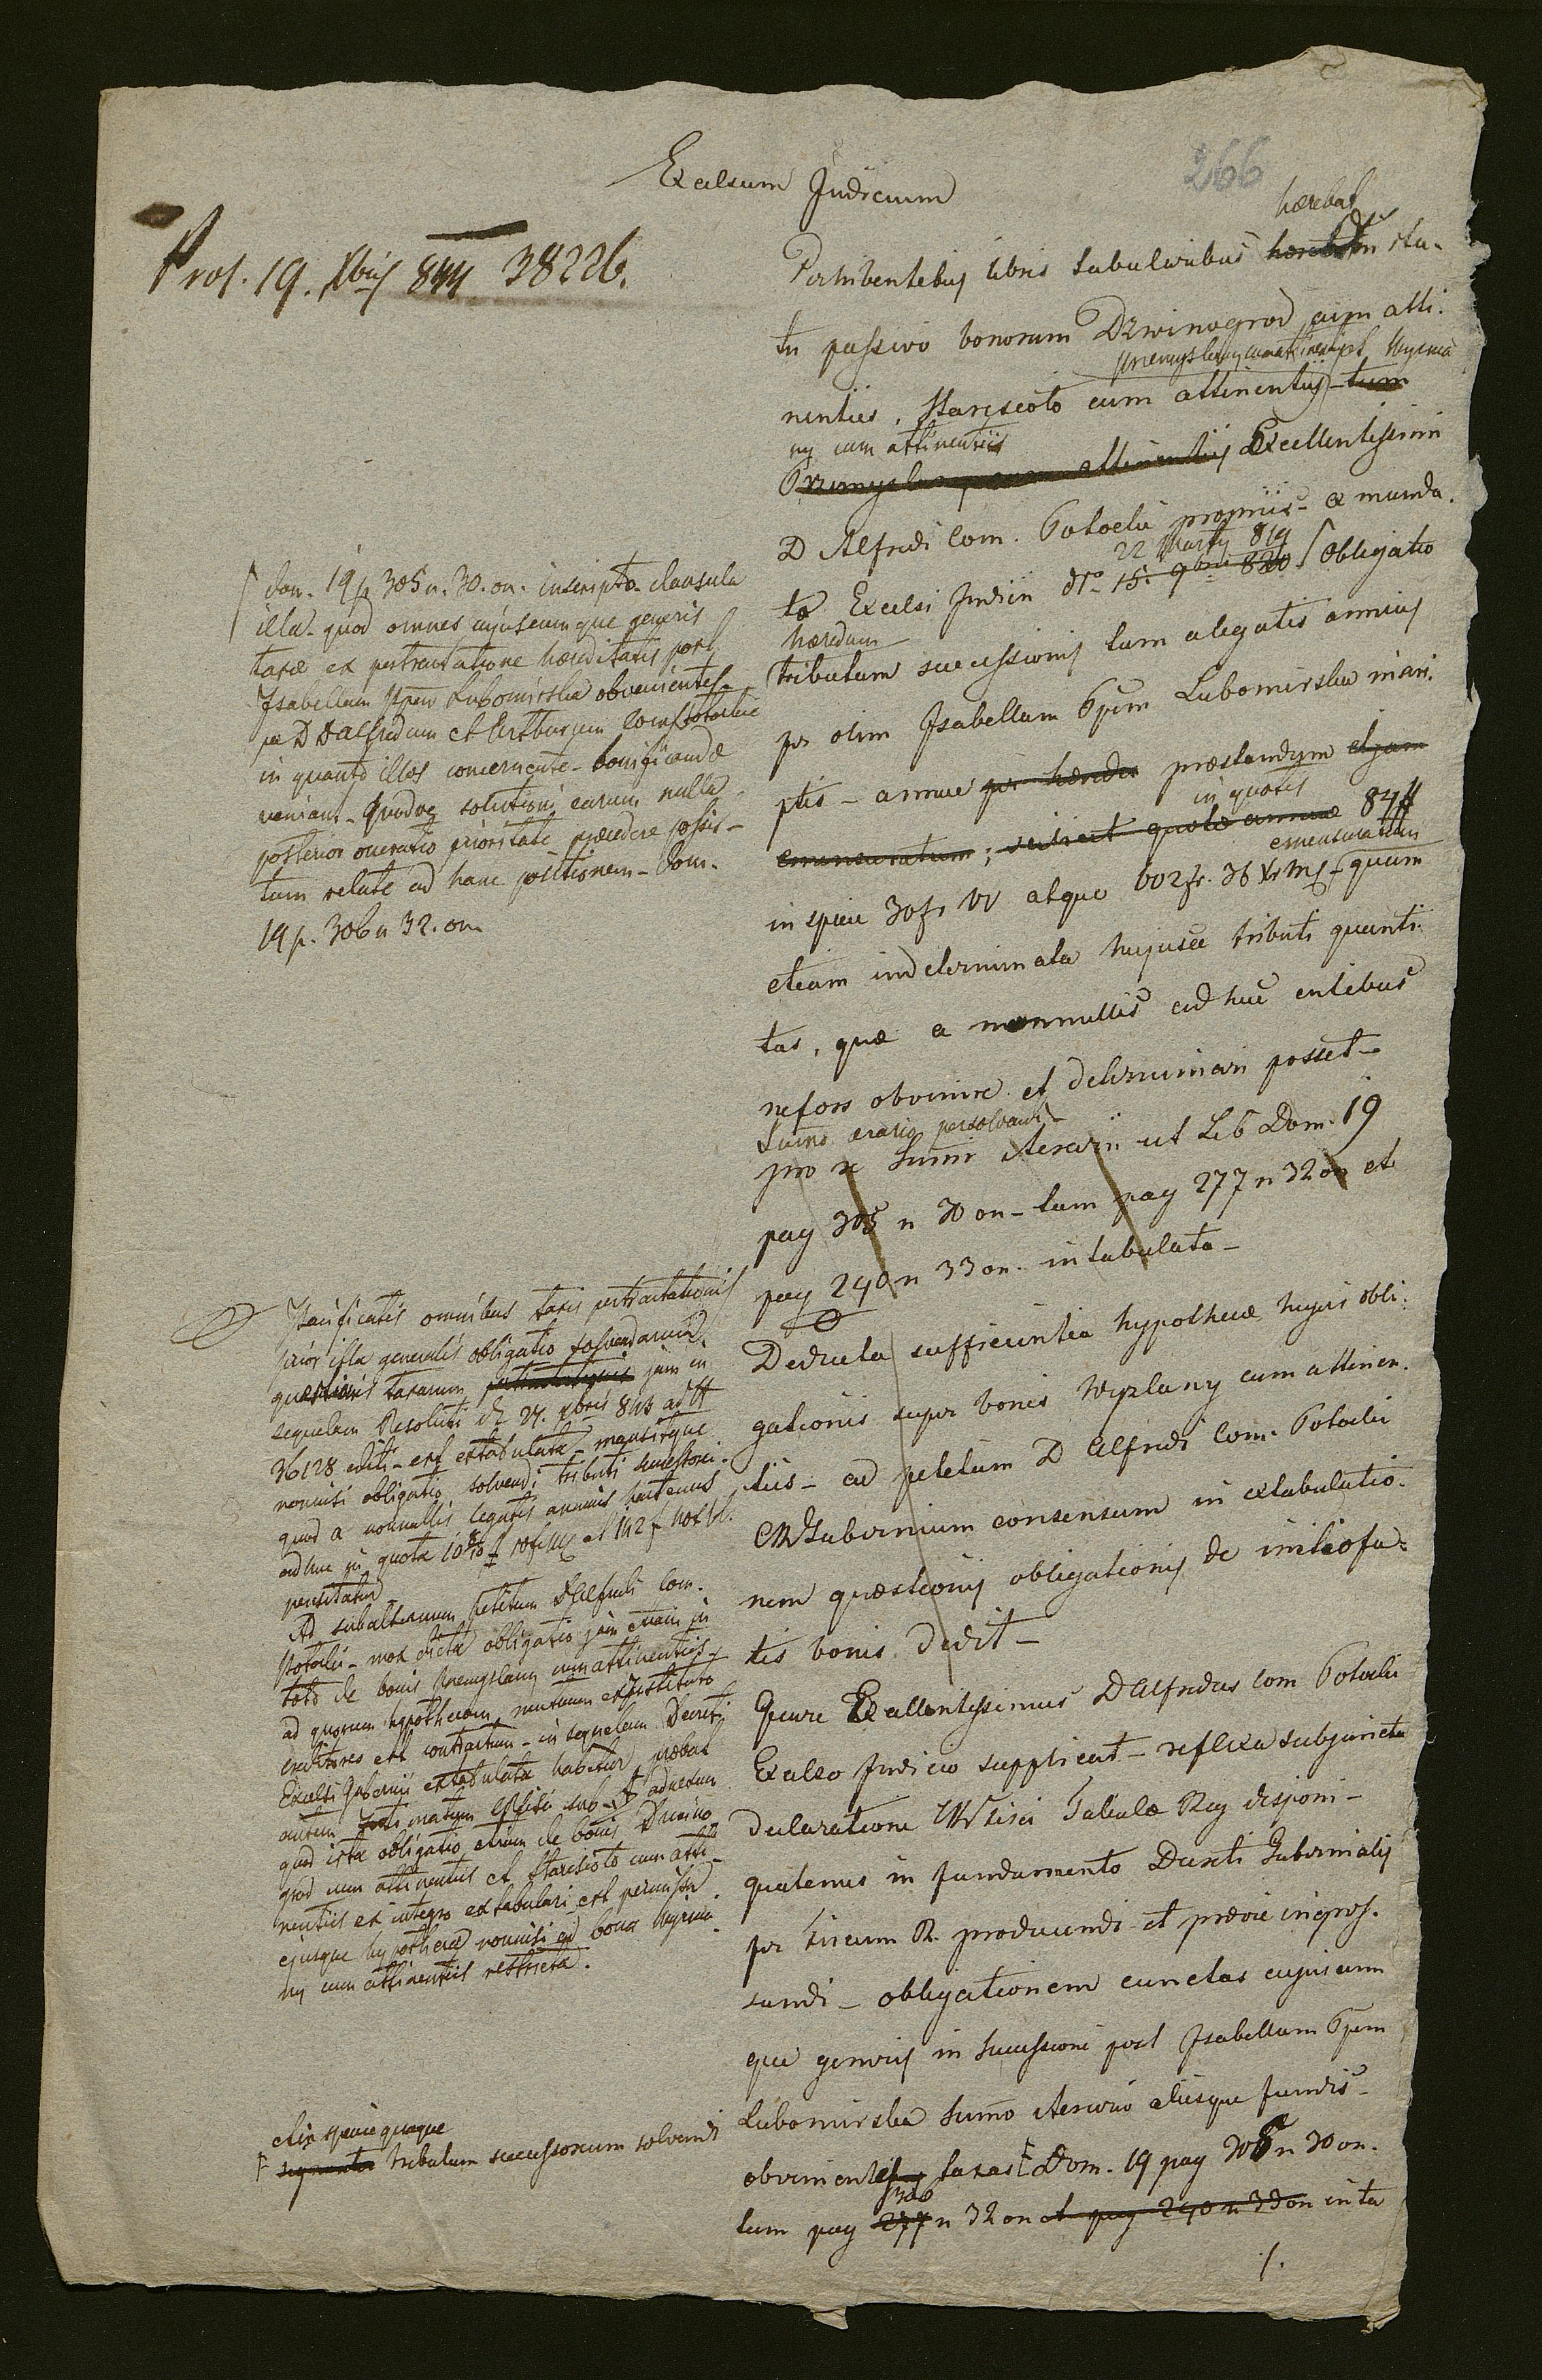 266
Excelsum Judicium
Pras. 19. Xbris 844 38226.
hærebat
Perhibentibus libris tabularibus hærebat in sta-
tu passivo bonorum Dzwinogrod cum atti-
Przemyslany cum attinentiis, Wyzma
nentiis, Staresioło cum attinentiis – tum
ny cum attinentiis
Przemyslany cum attinentiis Excellentissimi
D Alfredi Com. Potocki propriis – e manda-
22 Martij 819
to Excelsi Judicii dto 15. 9bris 820 obligatio
hæredum
tributum successionis tum a legatis annuis
per olim Isabellam Ppem Lubomirska inscri-
ptis – annue per hæredes præstandum
in quotis
emensuratum; scilicet quotæ annuæ 84#
emensuratum
in specie 30 fr W atque 602 fr. 36 Xr M – quam
etiam indeterminata hujusce tributi quanti-
tas, quæ a nonnullis adhuc entibus
nefors obvenire et determinari posset –
Summo ærario persolvendi –
pro re Summi Aerarii ut Lib Dom. 19
pag 305 n 30 on – tum pag 277 n 32 on et
pag 240 n 33 on. intabulata –
Deducta sufficientia hypothecæ hujus obli-
gationis super bonis Wyzlany cum attinen-
tiis – ad petitum D Alfredi Com. Potocki
Gubernium consensum in extabulatio-
nem quæstionis obligationis de initiofa-
tis bonis dedit –
Quare Excellentissimus D Alfredus Com Potocki
Excelso Judicio supplicat – reflexa subjuncta
declaratione Tabulæ Reg disponi –
quatenus in fundamento Decreti Gubernialis
per Fiscum R. producendi et prævie ingros-
sandi – obligationem cunctas cujuscun
que generis in successione post Isabellam Ppem
Lubomirska Summo Aerario aliisque fundis
obvenientes taxas Dom. 19 pag 305 n 30 on.
306
tum pag 277 n 32 on et pag 240 n 33 on inta
./.
dom. 19 p 305 n. 30. on. inscripta clausula
illa – quod omnes cujuscunque generis
taxæ ex pertractatione hæreditatis post
Isabellam Ppem Lubomirska obvenientes –
per DD Alfredum et Arthurum Com Potockie
in quanto illos concernente – bonificandæ
veniant – quodve solutioni earum nulla
posterior oneratio prioritate præcedere possit –
tum relate ad hanc positionem – Dom.
19 p. 306 n 32. on.
Pacificatis omnibus taxis pertractationis
prior ista generalis obligatio solvendarum
quæstionis taxarum jam in
sequelam Resoluti de 27. Xbris 843 ad #
36128 editi – est extabulata – mansitque
nonnisi obligatio solvendi tributi successori-
quod a nonnullis legatis annuis hactenus
adhuc in quota
pensitatur.
Ad subalternum petitum D Alfredi Com.
Potocki – mox dicta obligatio jam etiam in
toto de bonis Przemyslany cum attinentiis –
ad quorum hypothecam, mutuum ex Instituto
creditores est contractum – in sequelam Decreti
Excelsi Gubernii extabulata habetur, probat
autem Intimatum sub adnexum
quod ista obligatio etiam de bonis Dzwino
grod cum attinentiis et Staresioło cum atti-
nentiis ex integro extabulari est permissa
ejusque hypotheca nonnisi ad bona Wyzma-
ny cum attinentiis restricta.
et in specie quoque
tributum successorium solvendi